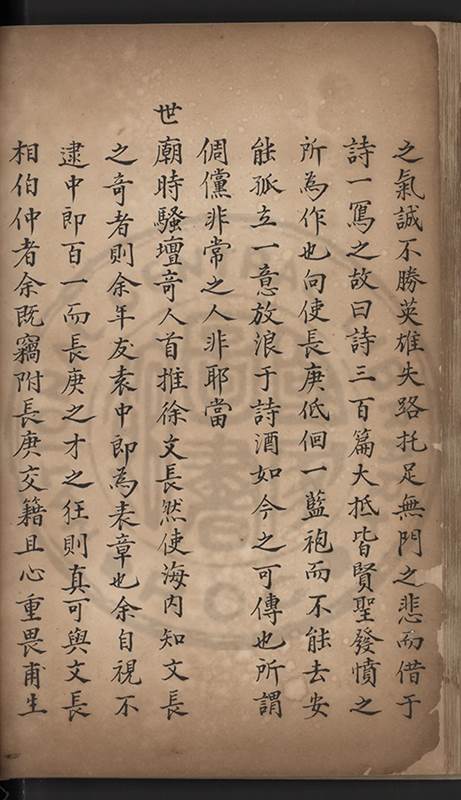 之氣誠不勝英雄失路托足無門之悲而借于
詩一寫之故曰詩三百篇大抵皆賢聖發憤之
所為作也向使長庚低佪一藍袍而不能去安
能孤立一意放浪于詩酒如今之可傳也所謂
倜儻非常之人非耶當
世廟時騷壇奇人首推徐文長然使海內知文長
之奇者則余年友袁中郎為表章也余自視不
逮中郎百一而長庚之才之狂則真可與文長
相伯仲者余既竊附長庚交籍且心重畏甫生